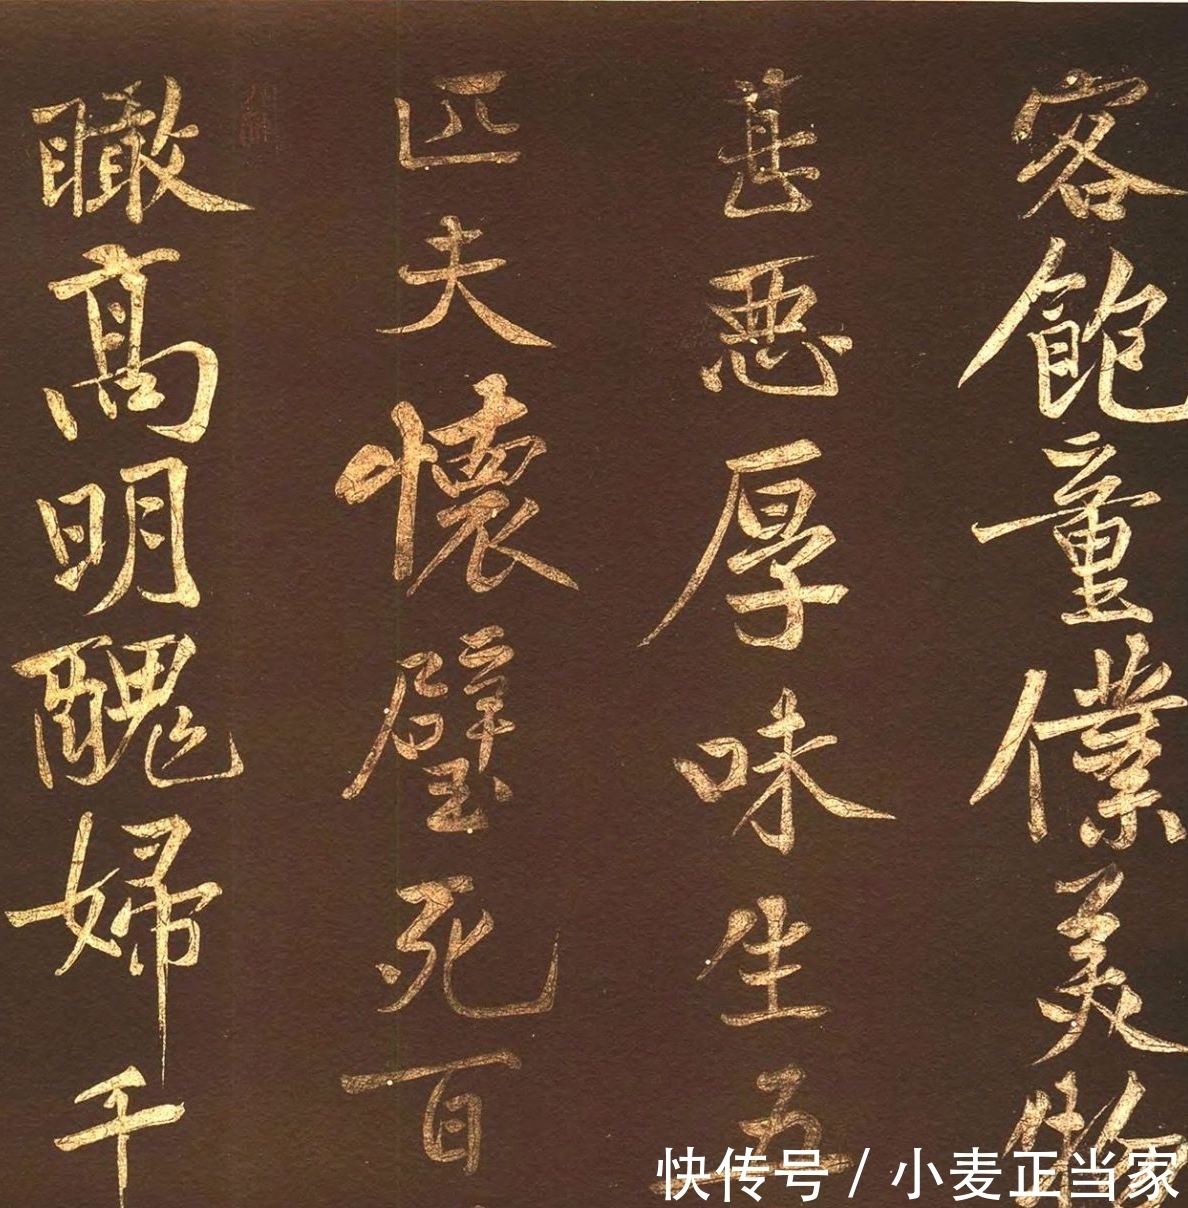 客飽童僕美物
甚惡厚味生五
匹夫懷璧死百
瞰高明醜婦千
快传号 / 小麦正当家